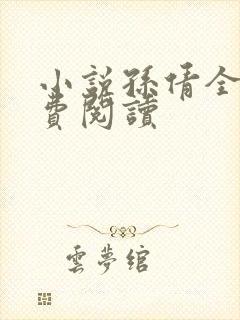 小說孫倩全
費閱讀
雲夢綰